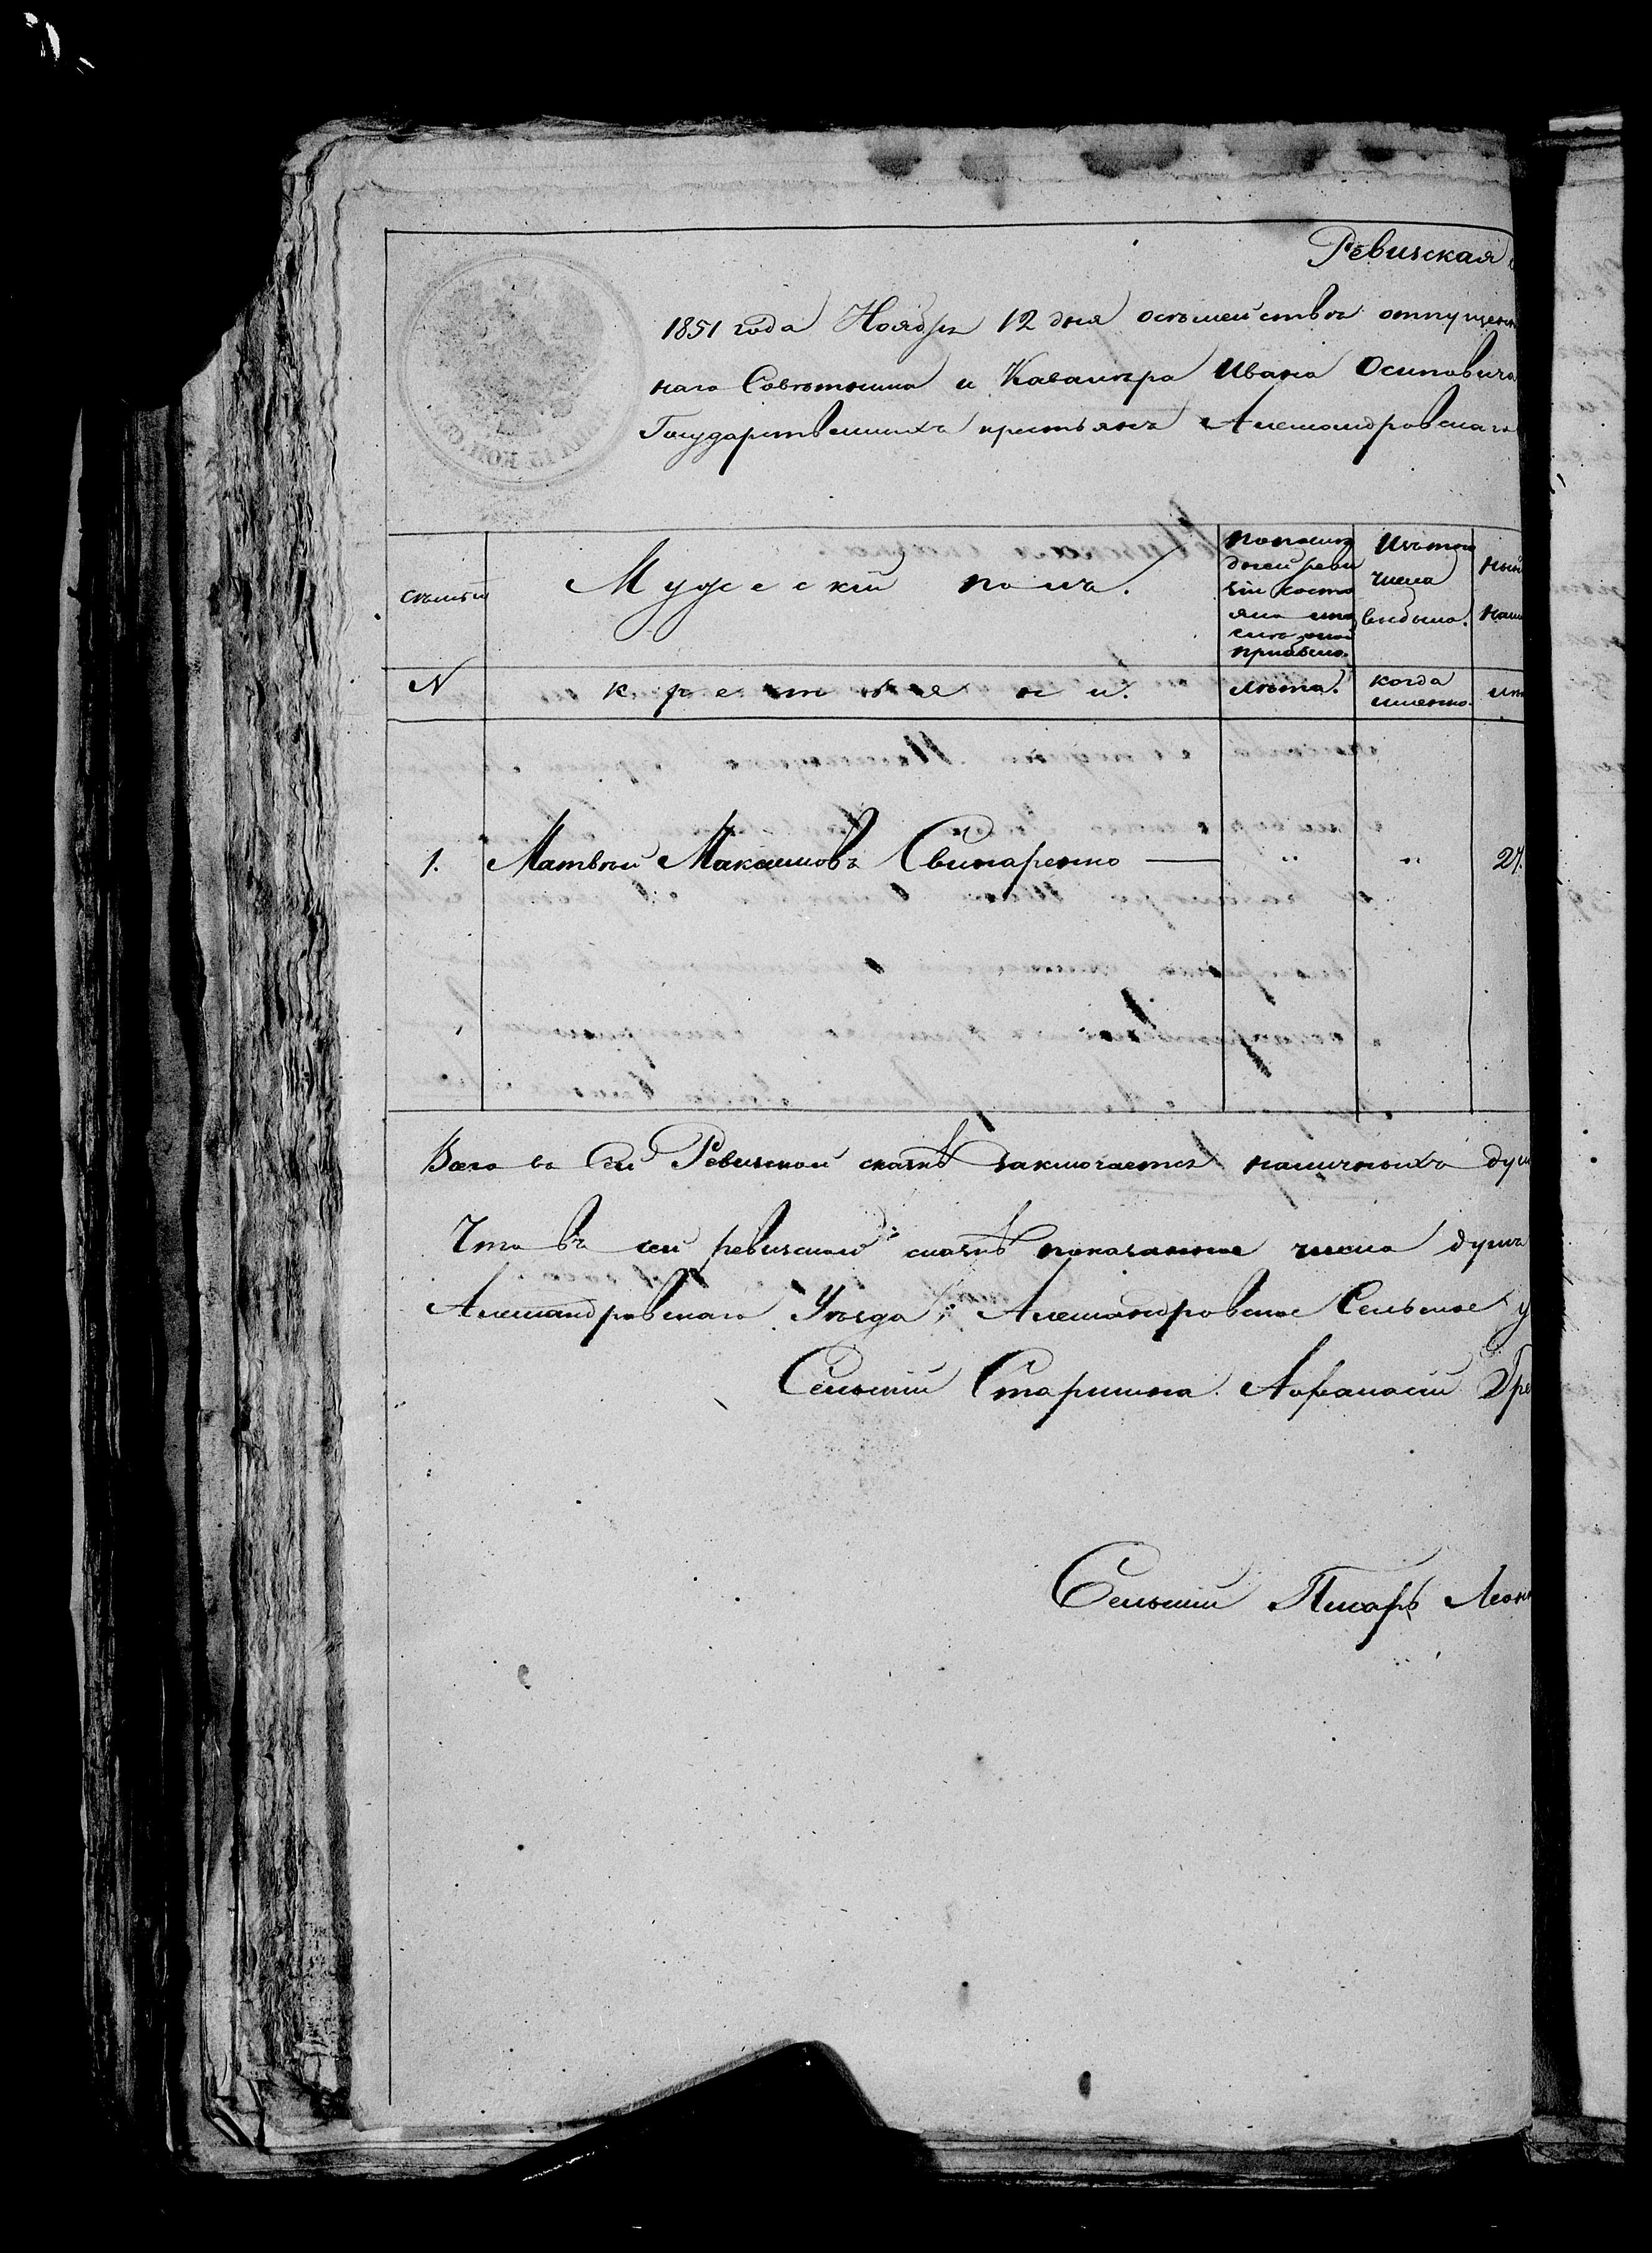 Ревизская
1851 года Ноября 12 дня о семействе отпущен
наго Советника и Кавалера Ивана Осиповича
Государственныхъ крестьянъ Александровскаго
семьи Мужескій полъ. По послед Изъ того Нын
ней реви числа
зіи состо выбыло. нали
яло или
после оной
прибыло.
№ крестьяне и. лѣта. когда
именно.
1. Матвѣй Максимовъ Свинаренко — „ „ 27.
Всего въ сей Ревизской сказкѣ заключается наличныхъ душ
Что въ сей ревизской сказкѣ показанное число душъ
Александровскаго Уѣзда, Александровское Сельское у
Сельскій Старшина Афанасій Гре
Сельскій Писарь Леон